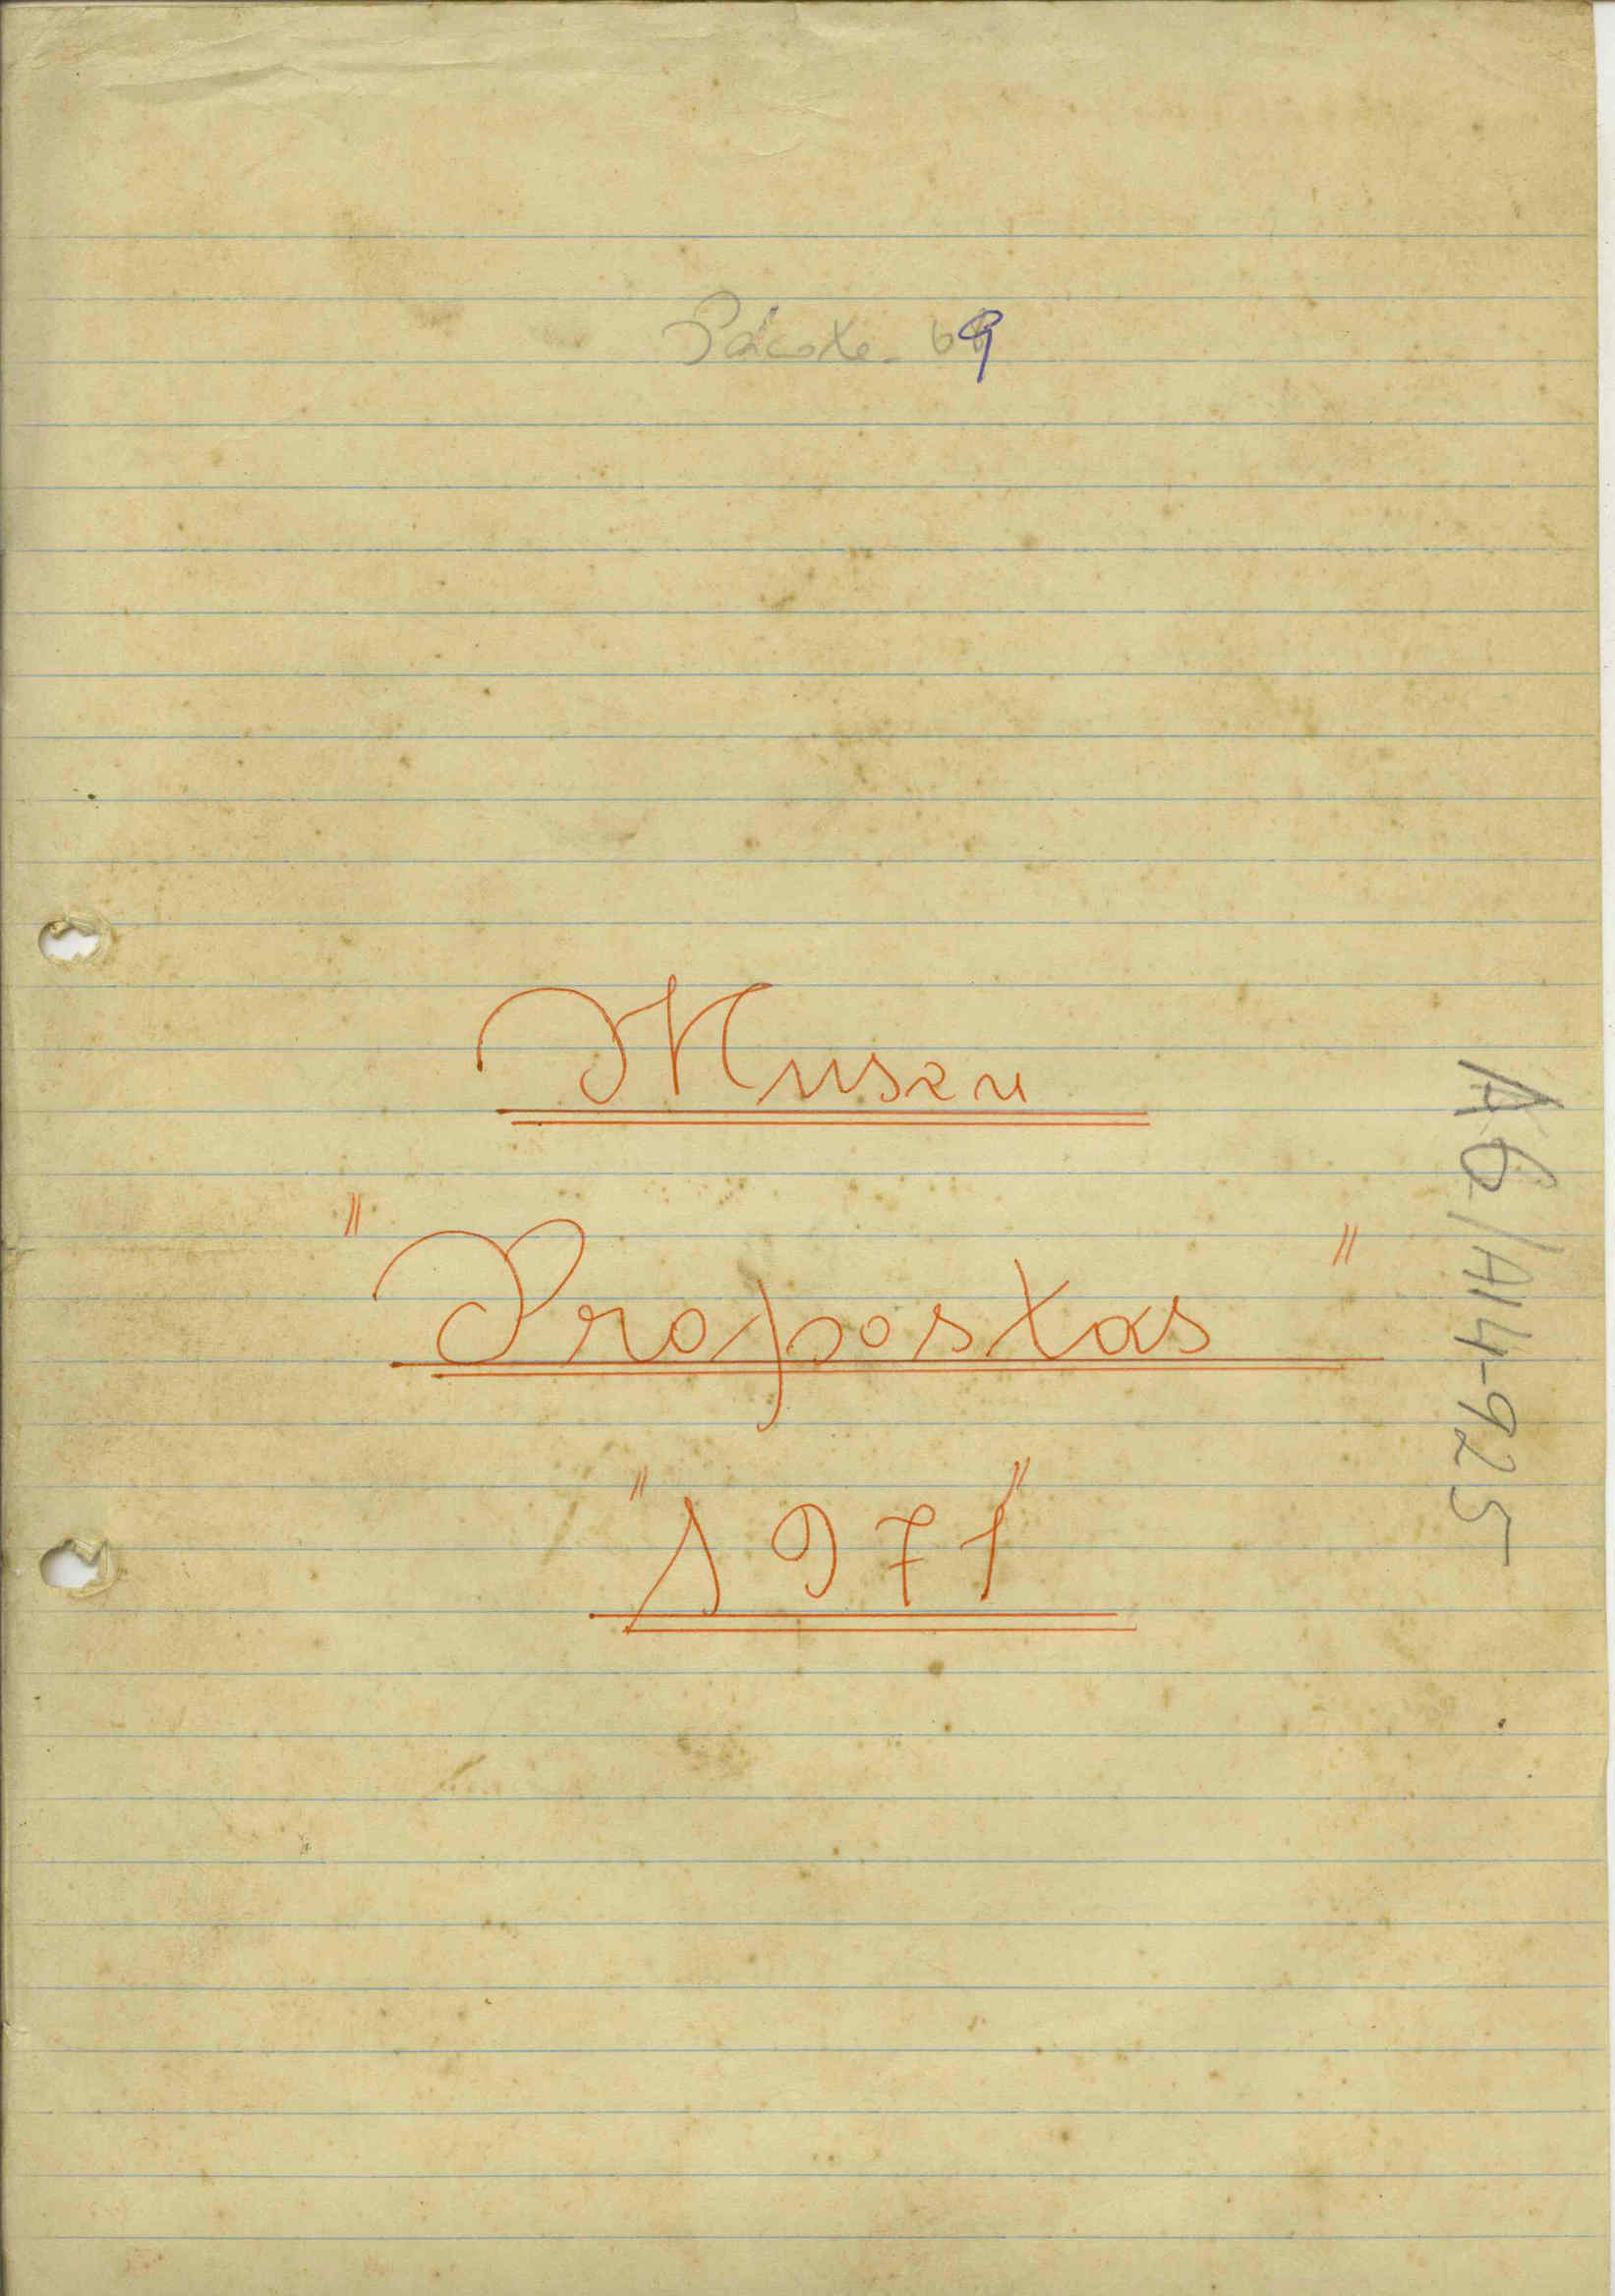 Pacote - 69
Museu
"Propostas"
"1971"
A6/A14-925